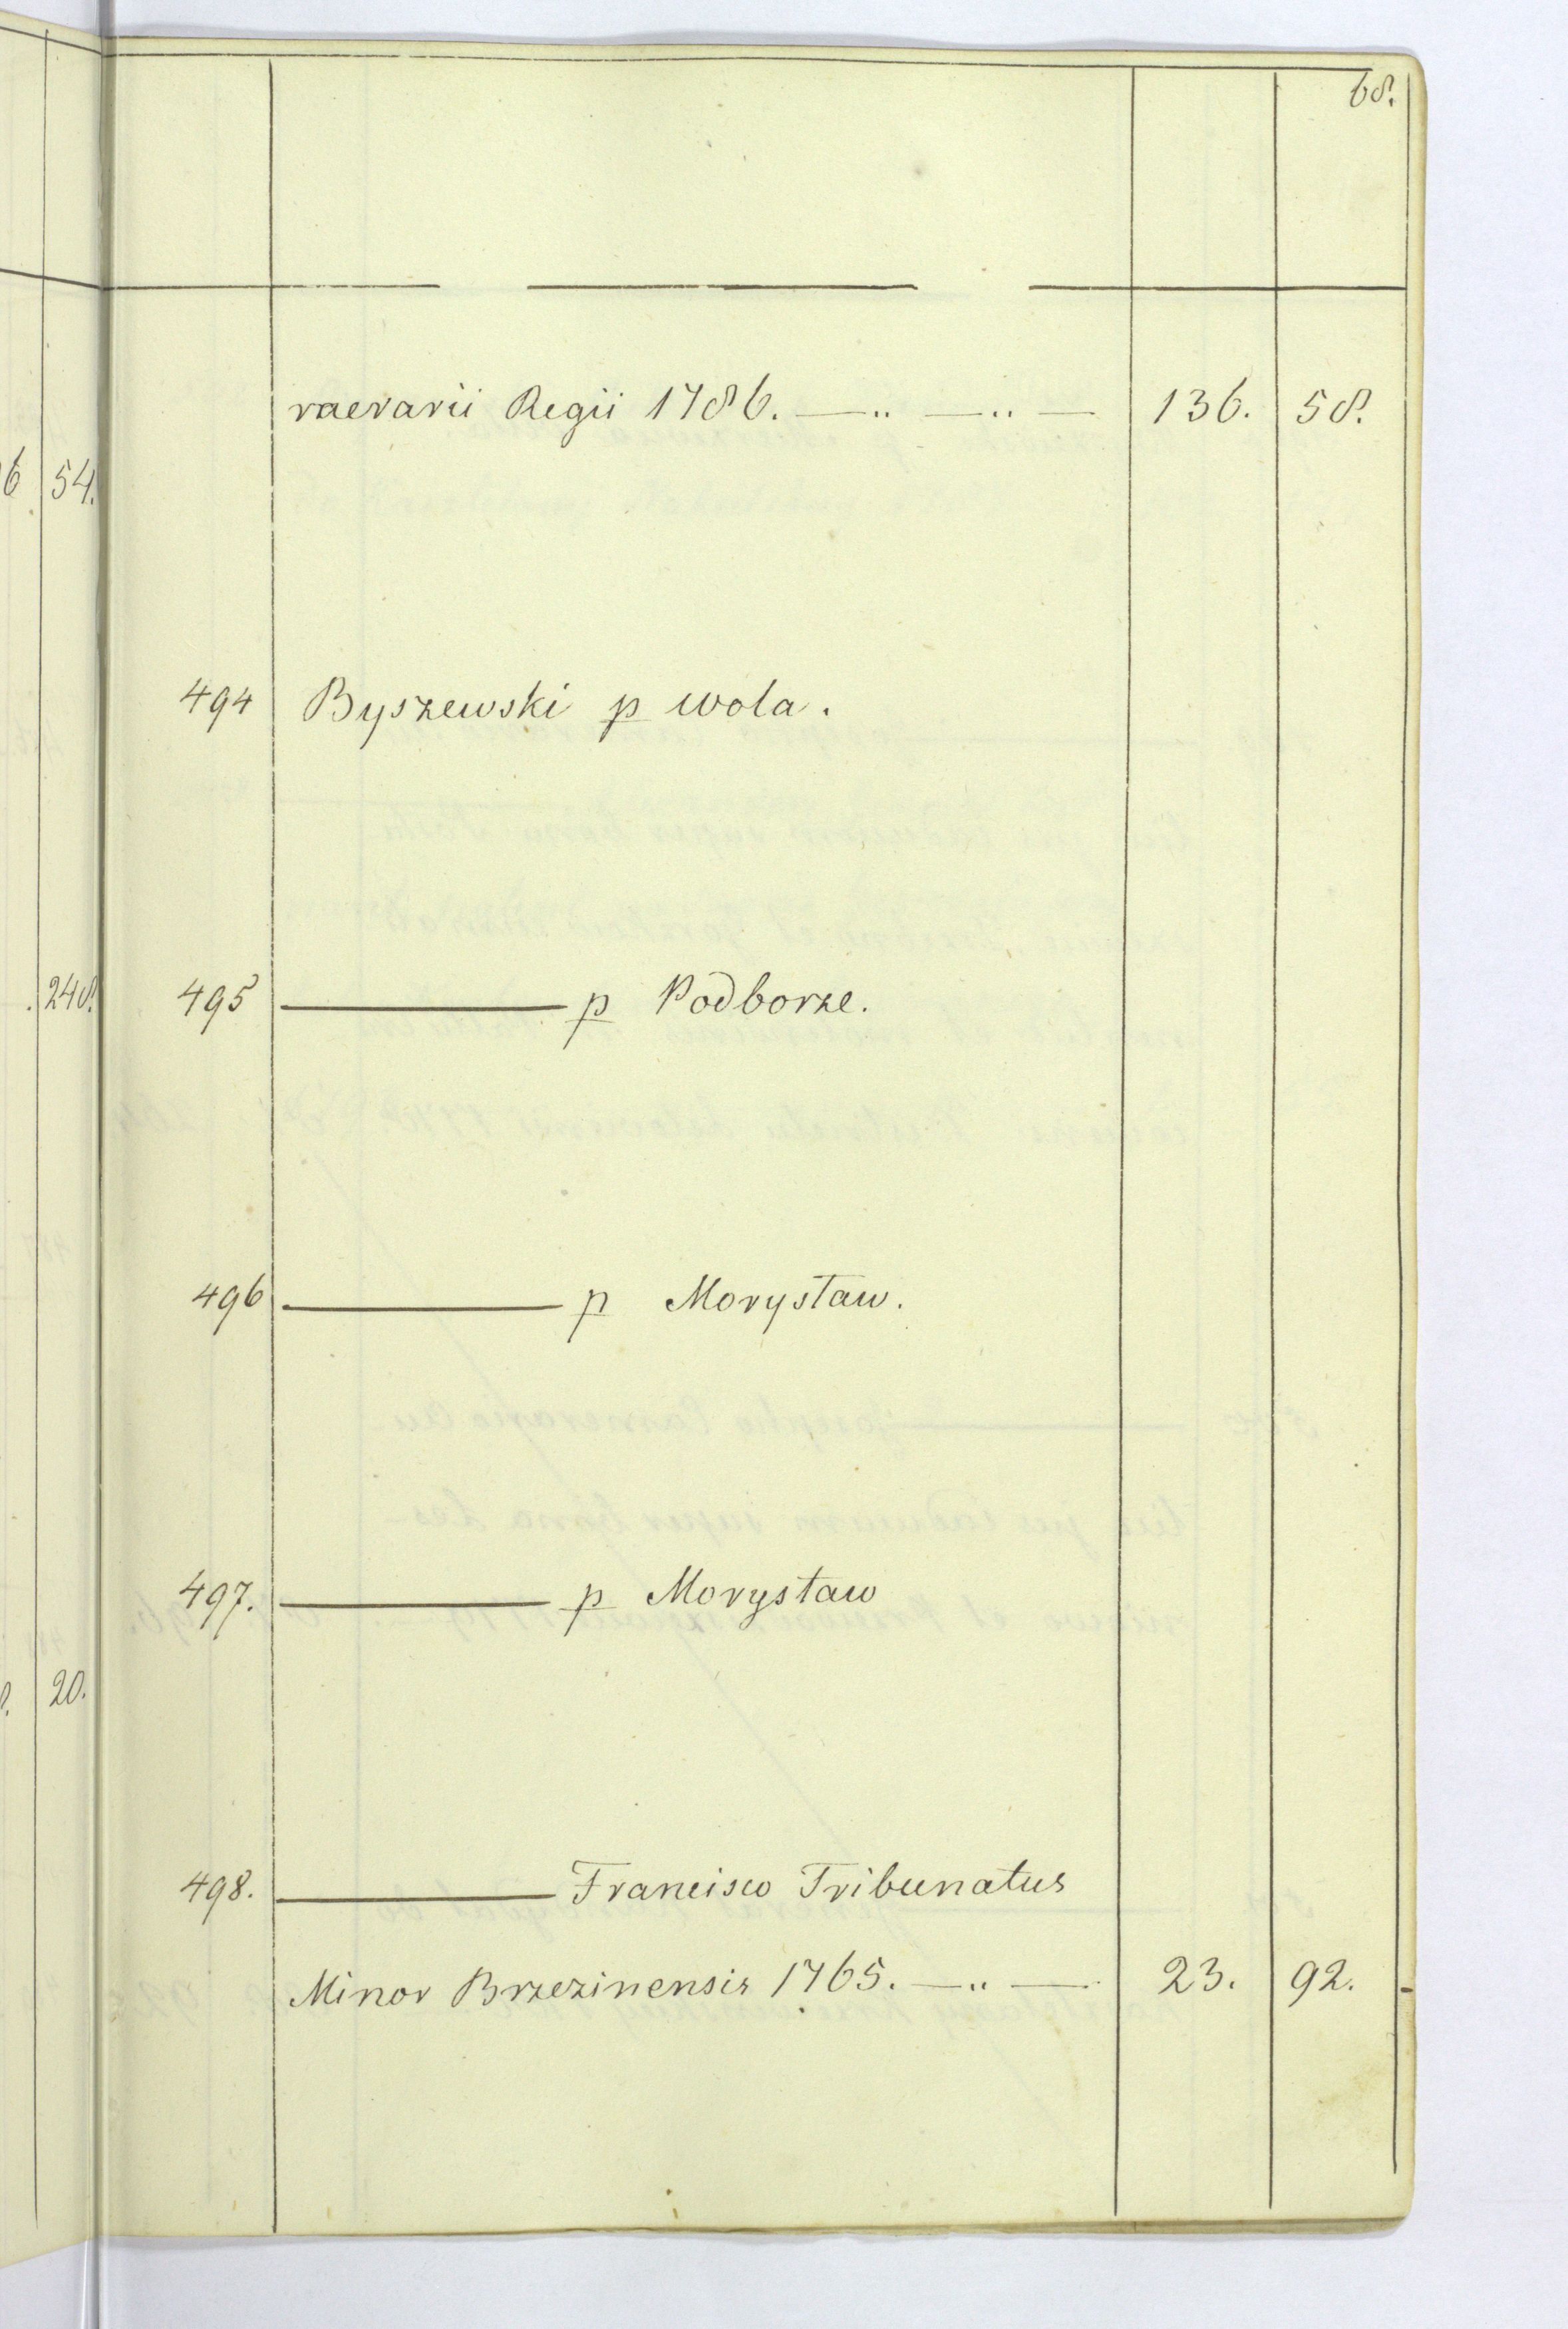 68.
raerarii Regii 1786. —„ —„ — 136. 58.
6 54.
494 Byszewski p wola.
240. 495 ——— p Podborze.
496 ——— p Morystaw.
497. ——— p Morystaw
20.
498. ——— Francisco Tribunatus
Minor Brzezinensis 1765. —„ — 23. 92.